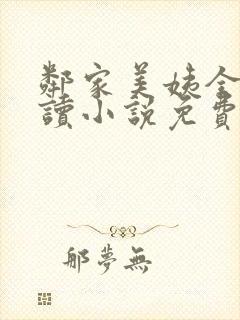 鄰家美姨全
讀小說免費
那夢無